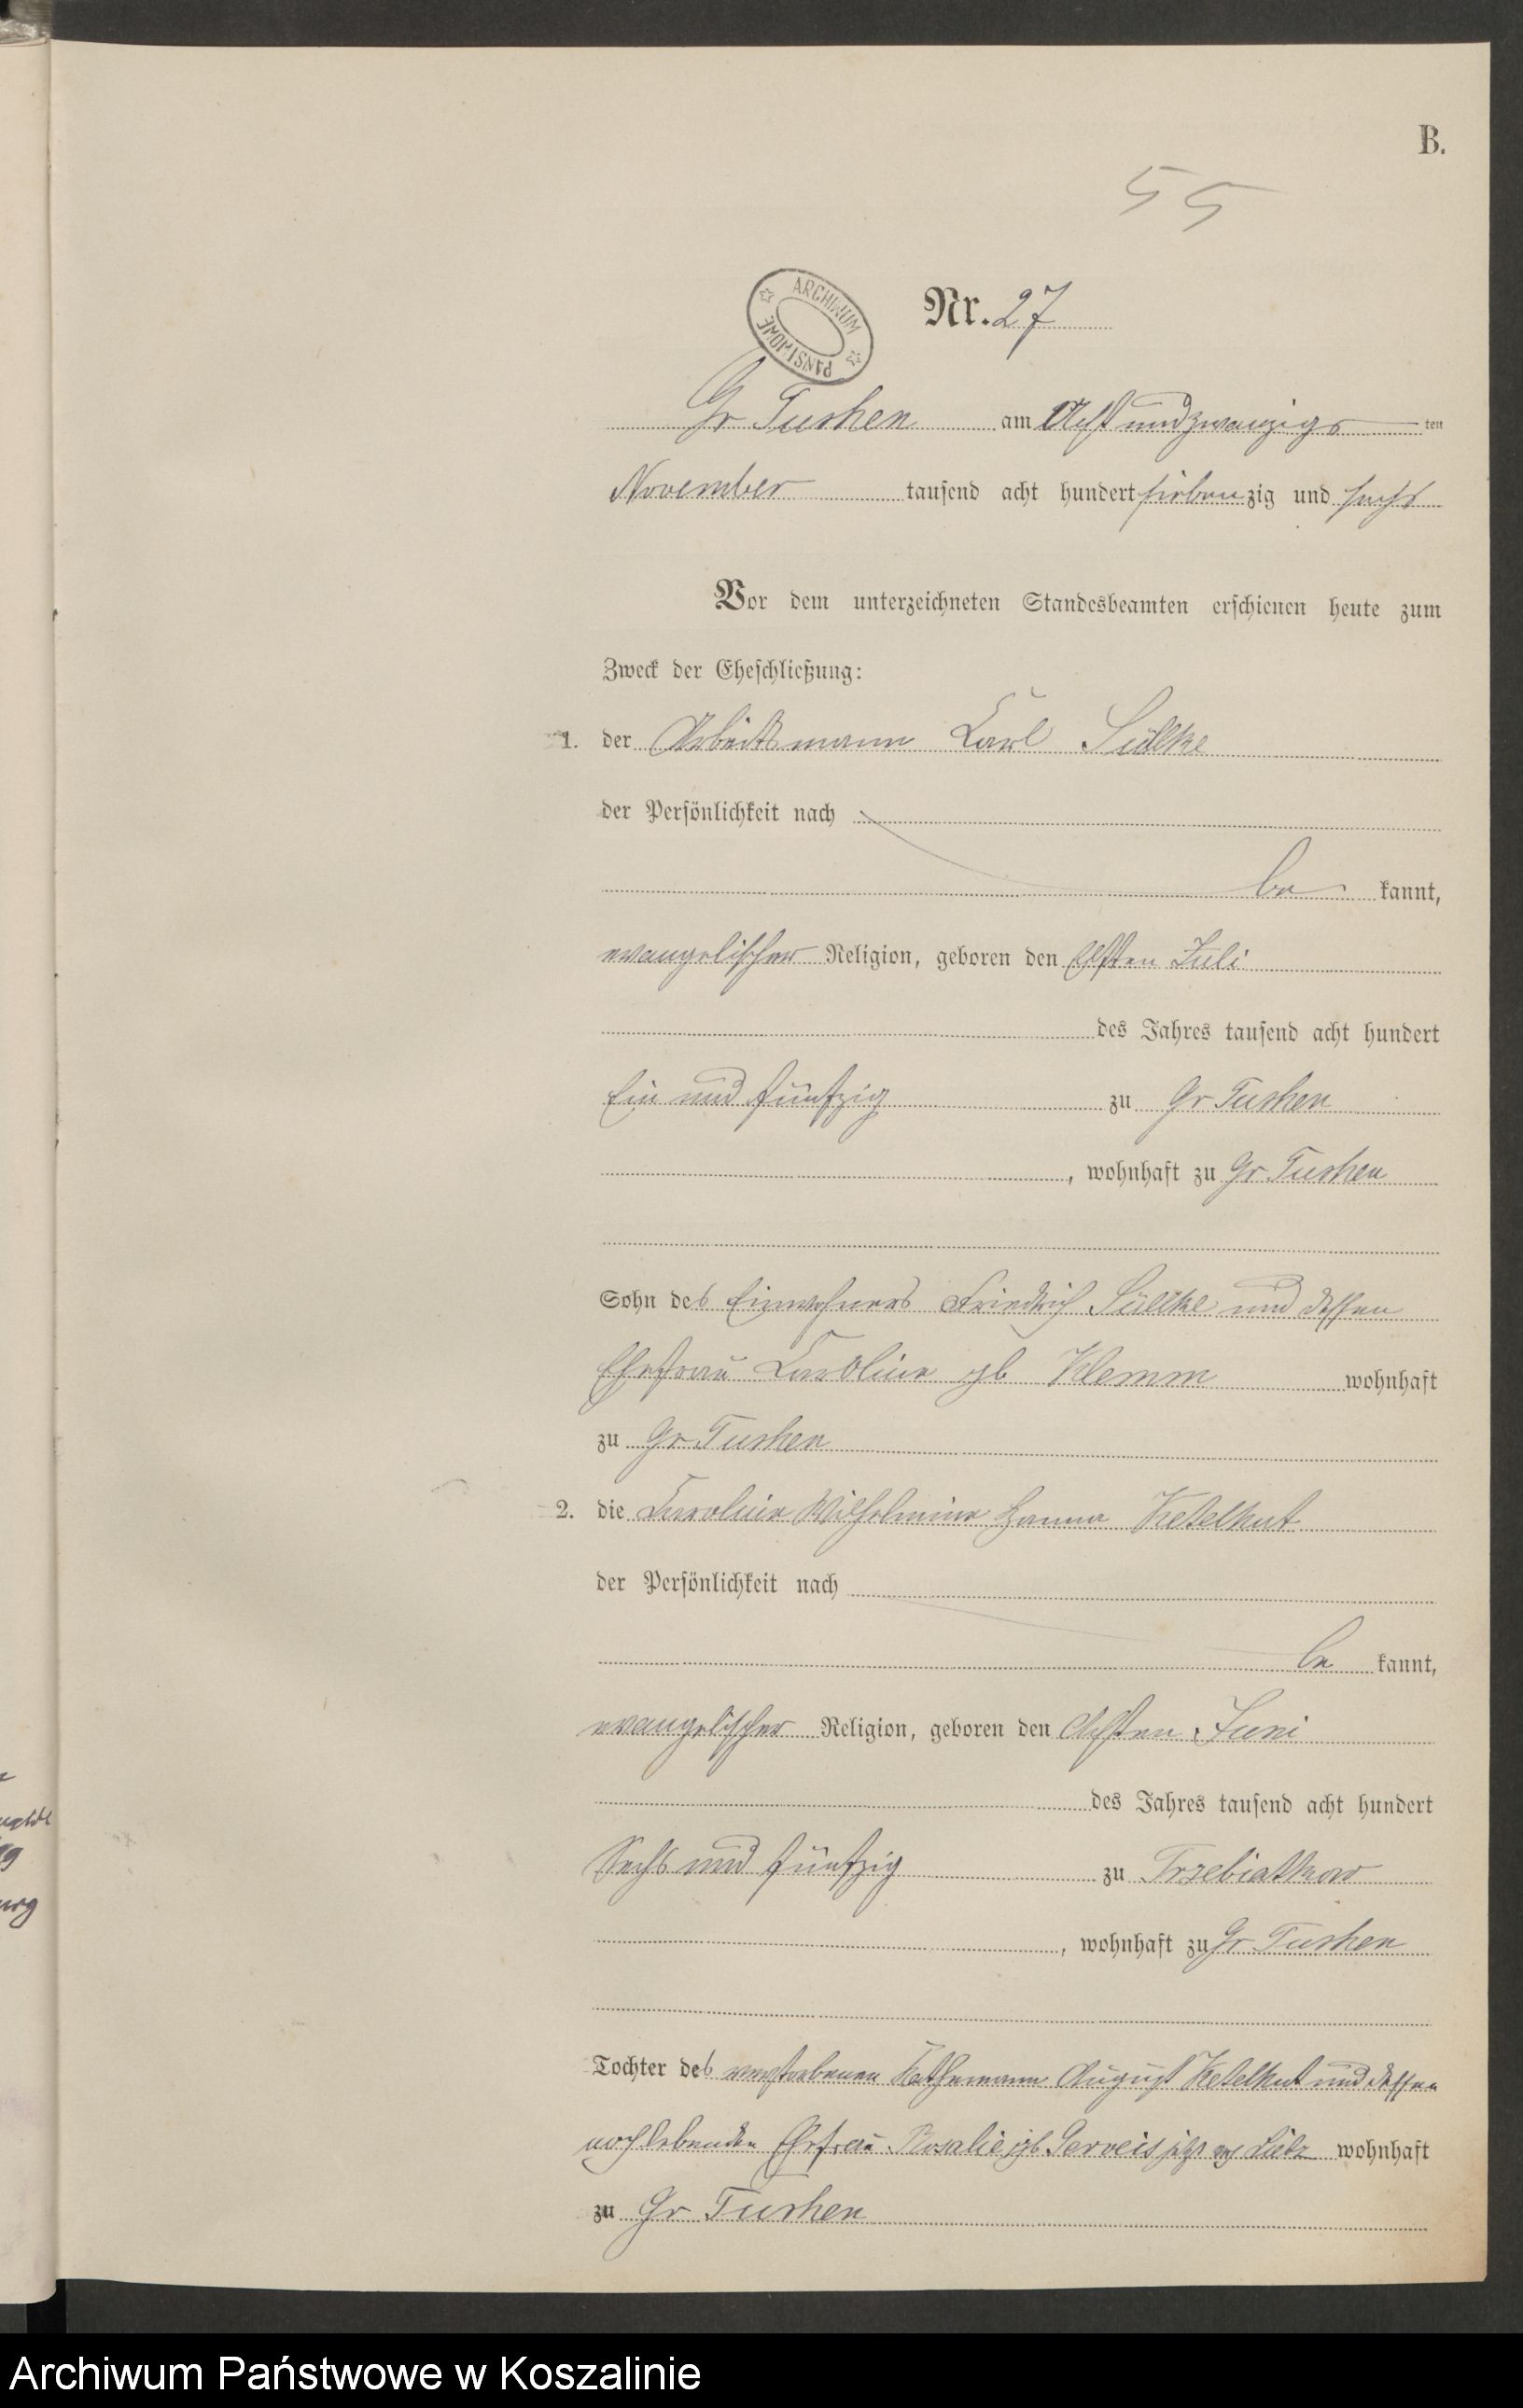 B.
55
ARCHIWUM PAŃSTWOWE
Nr. 27
Gr Tushen am Acht und zwanzigs ten
November tausend acht hundert siebenzig und sechs
Vor dem unterzeichneten Standesbeamten erschienen heute zum
Zweck der Eheschließung:
1. der Arbeitsmann Carl Süllke
der Persönlichkeit nach
be kannt,
evangelischer Religion, geboren den Elften Juli
des Jahres tausend acht hundert
Ein und fünfzig zu Gr Tushen
, wohnhaft zu Gr. Tushen
Sohn des Einwohners Friedrich Süllke und dessen
Ehefrau Caroline gb Klemm wohnhaft
zu Gr. Tushen
2. die Caroline Wilhelmine Hanna Ketelhut
der Persönlichkeit nach
be kannt,
evangelischer Religion, geboren den Achten Juni
des Jahres tausend acht hundert
Sechs und fünfzig zu Trzebiatkow
, wohnhaft zu Gr. Tushen
Tochter des verstorbenen Kathenmann August Ketelhut und dessen
noch lebenden Ehefrau Rosalie gb. Gerveis wohnhaft
zu Gr Tushen
Archiwum Państwowe w Koszalinie